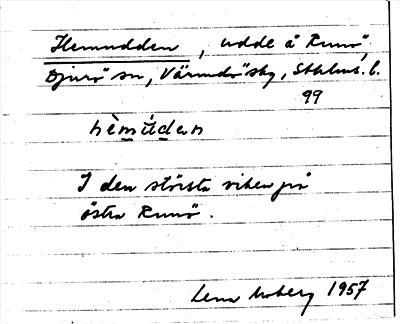 Hemudden, udde å Runö,
Djurö sn, Värmdö sky, Sthlms l.
99
hèmúdan
I den största viken på
östra Runö.
Lena Moberg 1957